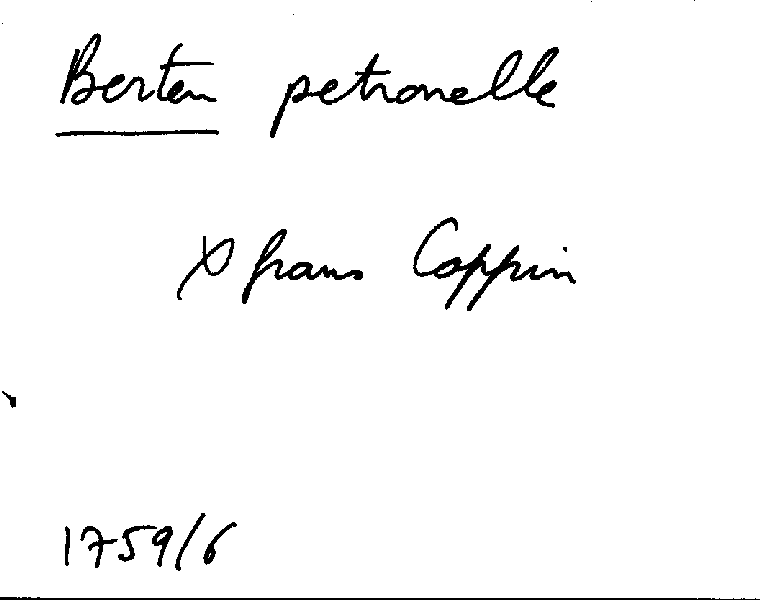 Berten petronelle
X frans Coppin
1759/6